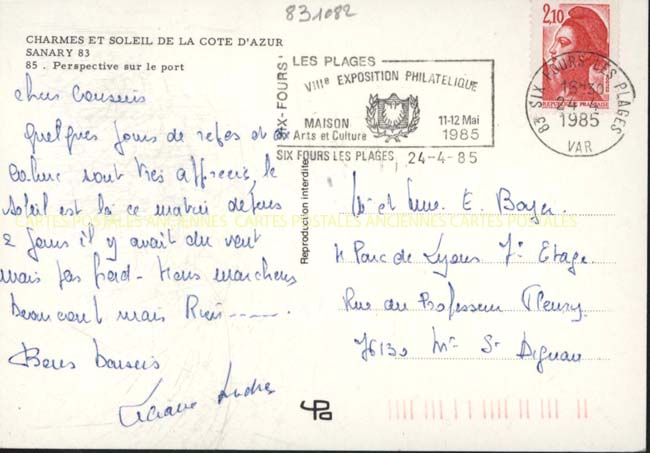 831082
CHARMES ET SOLEIL DE LA COTE D'AZUR
SANARY 83
85 . Perspective sur le port
chers cousins
Quelques jours de repos et de
calme sont très appréciés, le
soleil est là ce matin depuis
2 jours il y avait du vent
mais pas froid - Nous marchons
beaucoup mais Rien -----.
Bons baisers
SIX-FOURS
LES PLAGES
VIIIe EXPOSITION PHILATELIQUE
MAISON
des Arts et Culture
11-12 Mai
1985
SIX FOURS LES PLAGES 24-4-85
2,10
REPUBLIQUE FRANÇAISE
83 SIX FOURS LES PLAGES
16-30
24-4
1985
VAR
Reproduction interdite
Mr et Mme. E. Boyer
4 Parc de Lyons 7e Etage
Rue du Professeur Fleury
76130 Mt St Aignan
CARTES POSTALES ANCIENNES CARTES POSTALES ANCIENNES CARTES POSTALES